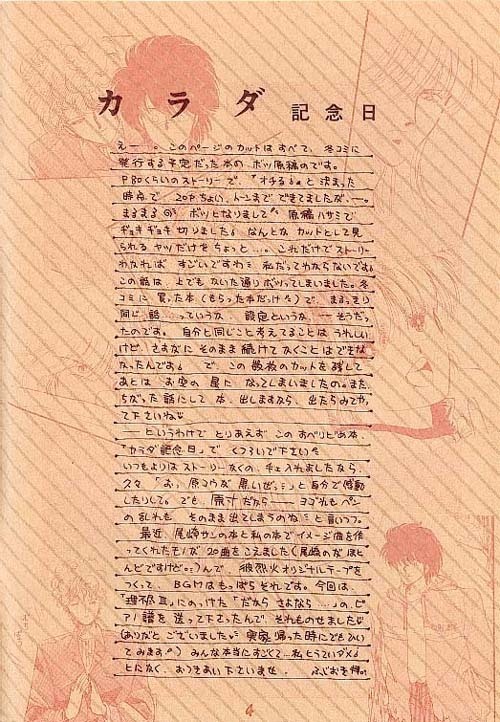 カラダ 記念日
えー 。このページのカットはすべて、冬コミに
発行する予定だった本の ボツ原稿のです。
P80くらいのストーリーで、『オチる。』と決まった
時点で 20Pちょい、トーンまで できてましたが、ー。
まるまる ボツになりまして 原稿ハサミで
ギョキギョキ切りました。なんとか カットとして見
られる ヤツだけをちょっと…。これだけでストーリー
わかれば すごいですわ 私だってわからないです。
この話は、上でも かいた通り ボツってしまいました。冬
コミに 買った本(もらった本だっけ)で、まるっきり
同じ話 …っていうか、設定というか、ーそうだっ
たのです。自分と同じこと考えてることは うれしい
けど、さすがに そのまま 続けてかくことはできな
なったんです。で、この数枚のカットを残して
あとは お空の星に なってしまいましたの。また
ちがった話にして 本、出しますなら、出たらみてや
って下さいね
ーというわけで とりあえず この
カラダ記念日」で くつろいで下さい
いつもよりは ストーリーなくの、チェ入れましたなら、
久々 「おっ、原コウが 黒いぜ。」と自分で感動
したりして。でも、原寸だからー ヨゴれもペン
の乱れも そのまま出てしまうのね と言いつつ。
最近、尾崎サンの本と私の本で イメージ曲を作
ってくれたモノが 20曲をこえました(尾崎のが ほと
んどですけど)んで、彼烈火オリジナルテープを
つくって、BGMはもっぱら それです。今回は、
「理不尽Ⅲ」にのっけた「だから さよなら……」の、ピ
アノ譜を 送って下さったんで、それものせました
(ありがと ございました 実家 帰った時にでもひい
てみます)みんな本当にすごくて…私とうていダメ。
とにかく、おつきあい下さいませ。
4